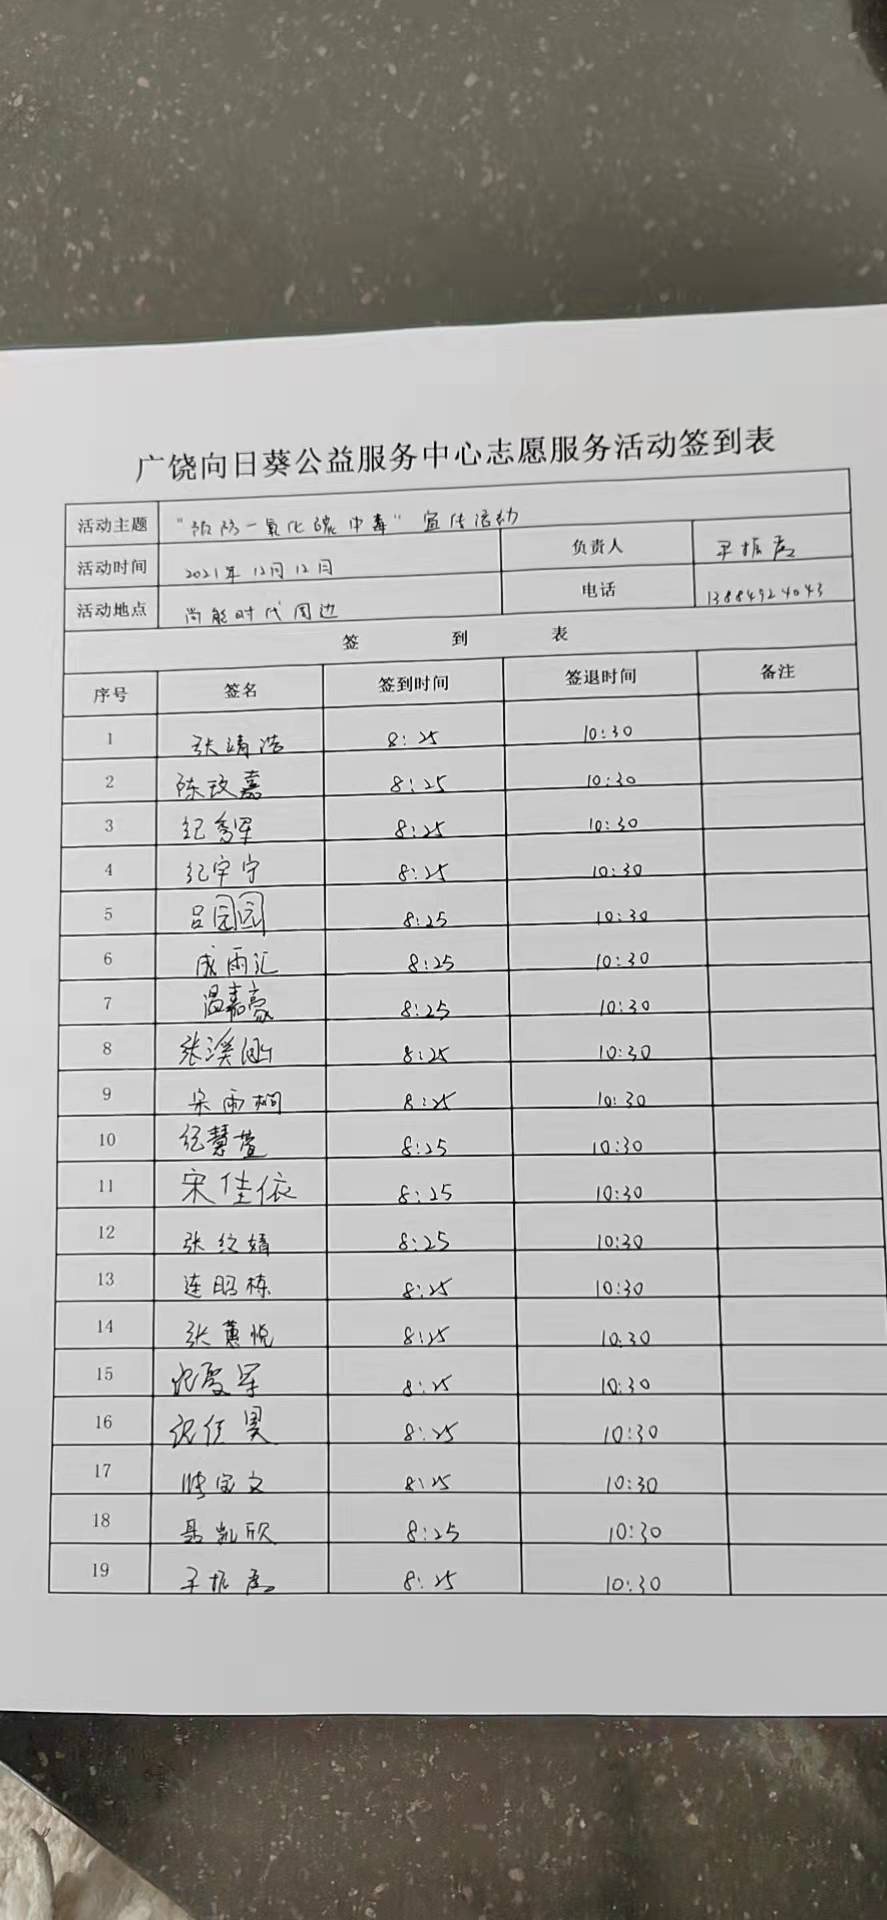 广饶向日葵公益服务中心志愿服务活动签到表
活动主题 "预防一氧化碳中毒" 宣传活动
活动时间 2021年12月12日 负责人 振
活动地点 尚能时代周边 电话 13884924043
签 到 表
序号 签名 签到时间 签退时间 备注
1 张靖浩 8:25 10:30
2 陈玟嘉 8:25 10:30
3 纪秀军 8:25 10:30
4 纪宇宁 8:25 10:30
5 吕园园 8:25 10:30
6 成雨汇 8:25 10:30
7 温嘉豪 8:25 10:30
8 张溪 8:25 10:30
9 宋雨桐 8:25 10:30
10 纪慧萱 8:25 10:30
11 宋佳依 8:25 10:30
12 张 婧 8:25 10:30
13 连昭栋 8:25 10:30
14 张蕙悦 8:25 10:30
15 军 8:25 10:30
16 佳昊 8:25 10:30
17 文 8:25 10:30
18 聂凯欣 8:25 10:30
19 振 8:25 10:30